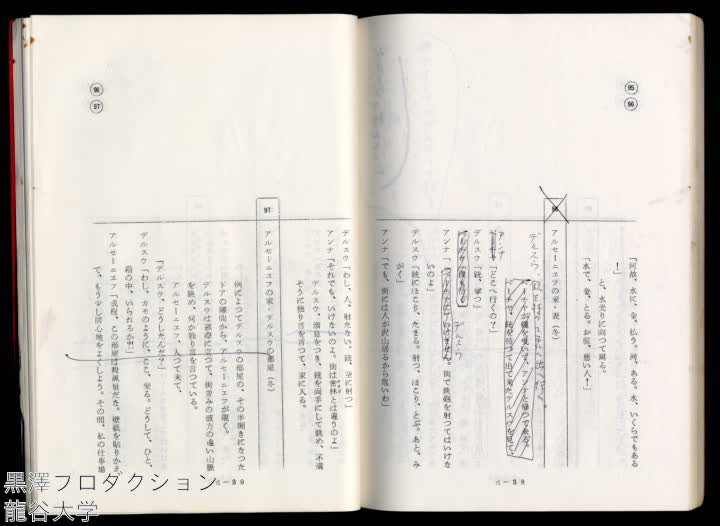 95
96
「何故、水に、金、払う。河、ある。水、いくらでもある
！」
と、水売りに向って怒る。
「水で、金、とる。お前、悪い人！」
96
アルセーニエフの家・表（冬）
デルスウ、銃を持って
ペーチャが橇を曳いて、アンナと帰って来る。
アンナ
「どこへ行くの？」
デルスウ「銃、撃つ」
デルスウ
アンナ「
街で鉄砲を射ってはいけな
いのよ」
デルスウ「銃にほこり、たまる。射つ、ほこり、とぶ。あと、み
がく」
アンナ「でも、街には人が沢山居るから危いわ」
d－38
96
97
デルスウ「わし、人、射たない。銃、空に射つ」
アンナ「それでも、いけないのよ、街は密林とは違うのよ」
デルスウ、溜息をつき、銃を両手にして眺め、不満
そうに独り言を言って、家に入る。
97
アルセーニエフの家・デルスウの部屋（冬）
例によってデルスウの部屋の、その半開きになった
ドアの隙間から、アルセーニエフが覗く。
デルスウは窓際に立って、街並みの彼方の遠い山脈
を眺め、何か独り言を言っている。
アルセーニエフ、入って来て、
「デルスウ、どうしたんだ？」
デルスウ「わし、カモのように、ここ、坐る。どうして、ひと、
箱の中、いられるか？」
アルセーニエフ「成程、この部屋は殺風景だな。壁紙を貼りかえ
て、もう少し居心地をよくしよう。その間、私の仕事場
d－39
黒澤プロダクション
龍谷大学